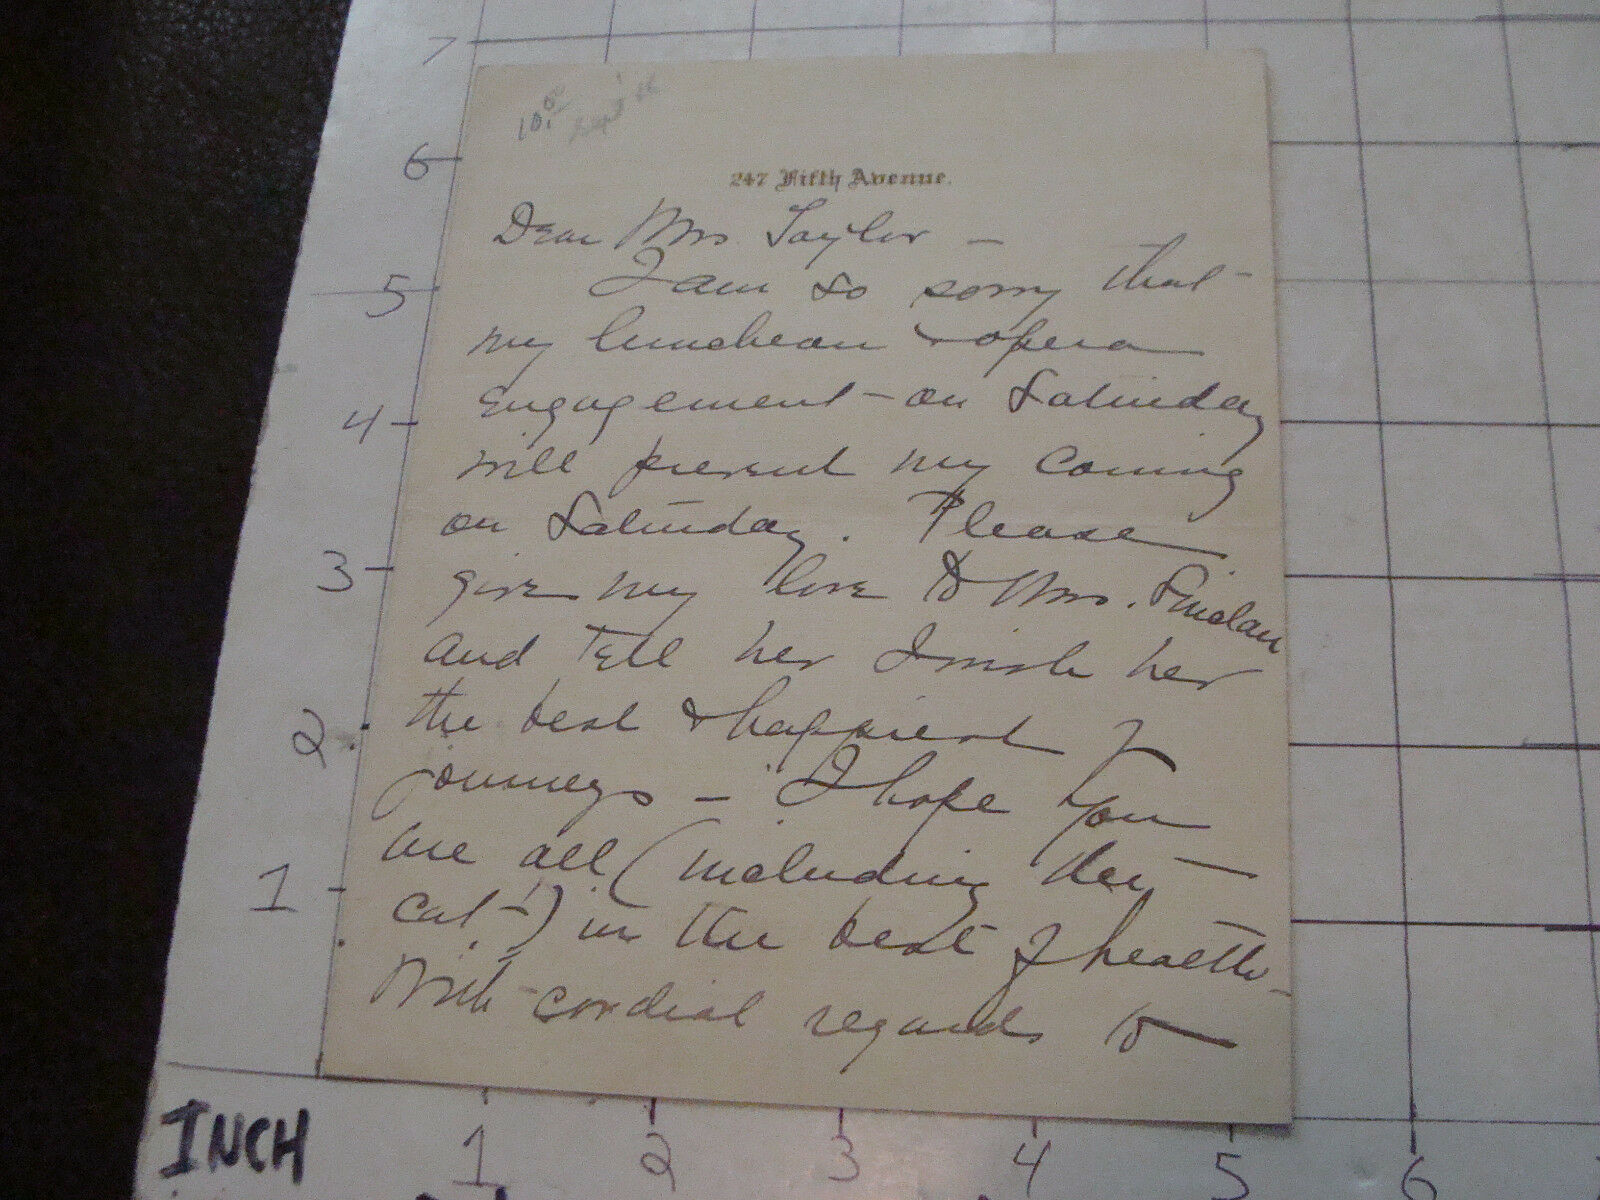 7
6
5
4
3
2
1
10.00
247 Fifth Avenue.
Dear Mrs. Taylor –
I am so sorry that
my luncheon & opera
engagement on Saturday
will prevent my coming
on Saturday. Please
give my love to Mrs. Sinclair
and tell her I wish her
the best & happiest of
journeys – I hope you
are all (including the
cat!) in the best of health –
With cordial regards to
INCH
1 2 3 4 5 6